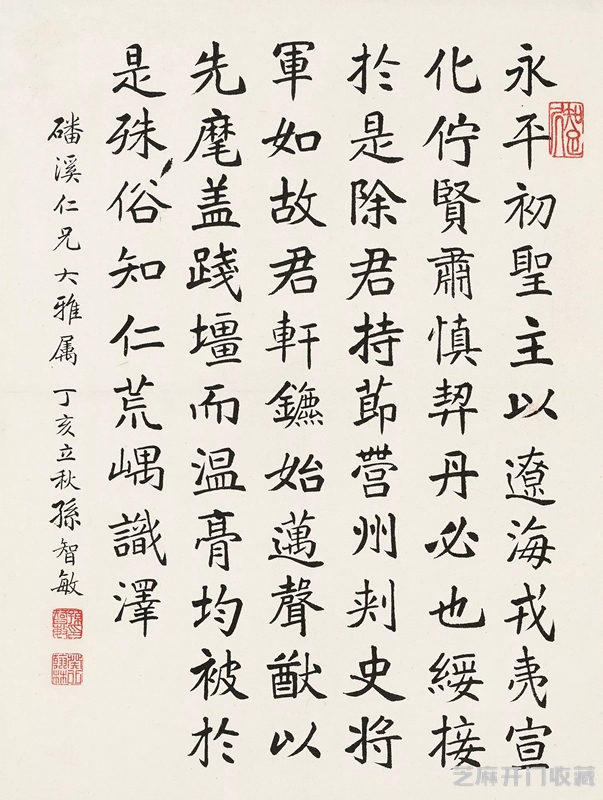 永平初聖主以遼海戎夷宣
化佇賢肅慎契丹必也綏接
於是除君持節營州刺史將
軍如故君軒鑣始邁聲猷以
先麾盖踐壃而温膏均被於
是殊俗知仁荒嵎識澤
磻溪仁兄大雅属 丁亥立秋孫智敏
芝麻开门收藏